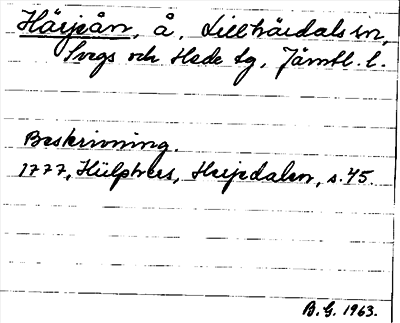 Härjeån, å, Lillhärdals sn,
Svegs och Hede tg, Jämtl. l.
Beskrivning.
1777, Hülphers, Herjedalen, s. 45.
B.G. 1963.